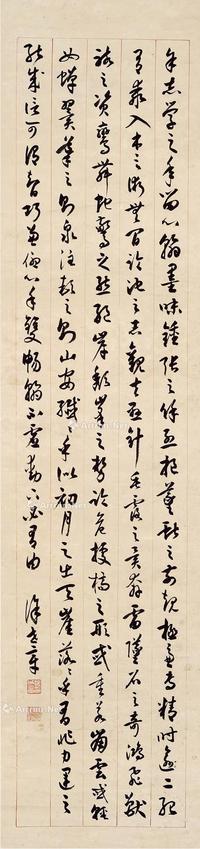 余志學之年留心翰墨味鍾張之餘烈挹羲獻之前規極慮專精時逾二紀
有乖入木之術無間臨池之志觀夫懸針垂露之異奔雷墜石之奇鴻飛獸
駭之資鸞舞蛇驚之態絕岸頹峯之勢臨危據槁之形或重若崩雲或輕
如蟬翼導之則泉注頓之則山安纖纖乎似初月之出天崖落落乎有非力運之
能成信可謂智巧兼優心手雙暢翰不虛動下必有由
徐世章